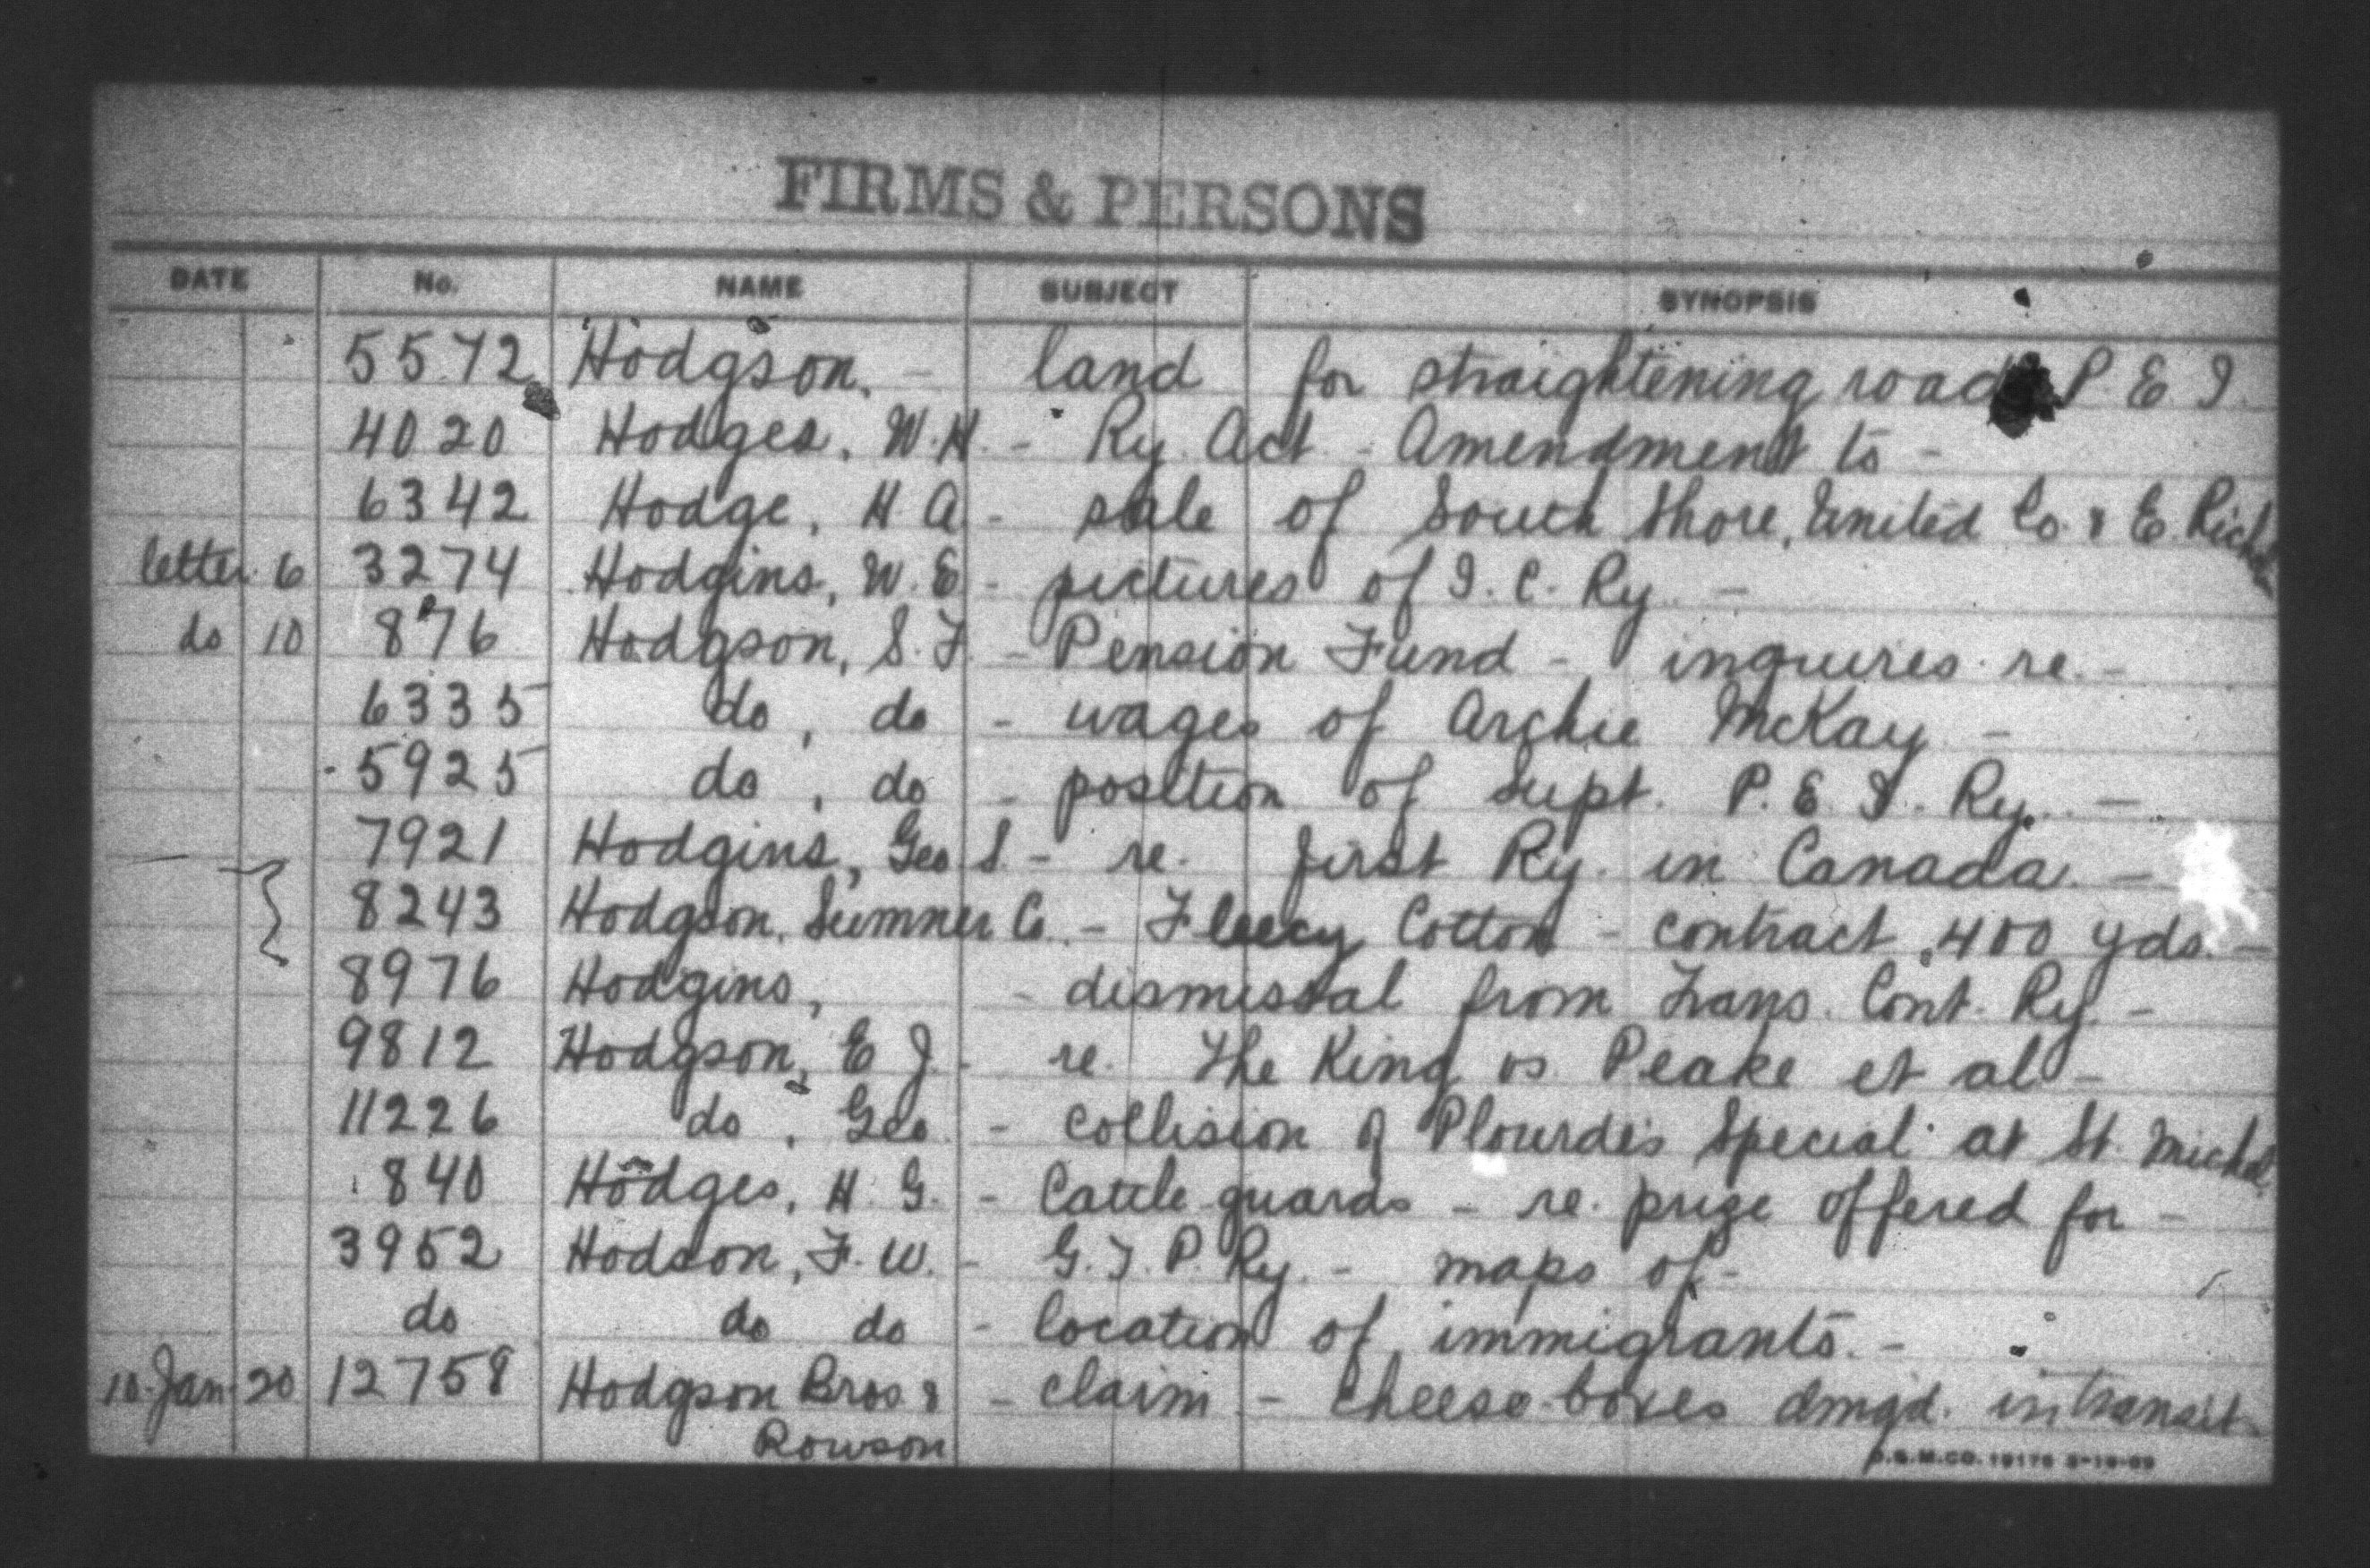 FIRMS & PERSONS
DATE No. NAME SUBJECT SYNOPSIS
5572 Hodgson. - land for straightening road P. E. I.
4020 Hodges, W. H. - Ry. Act - Amendment to -
6342 Hodge, H. A. - sale of South Shore, United Co. & E. Rich
letter 6 3274 Hodgins, W. E. - pictures of I. C. Ry. -
do 10 876 Hodgson, S. F. - Pension Fund - inquires re. -
6335 do, do - wages of Archie McKay -
5925 do, do - position of Supt. P. E. I. Ry. -
7921 Hodgins, Geo S. - re. first Ry. in Canada. -
8243 Hodgson, Sumner Co. - Fleecy Cotton - contract 400 yds. -
8976 Hodgins, - dismissal from Trans. Cont. Ry. -
9812 Hodgson, E J. - re. The King vs Peake et al -
11226 do, Geo. - collision of Plourde's Special at St. Michel
840 Hodges, H. G. - Cattle guards - re. prize offered for -
3952 Hodson, F. W. - G. T. P. Ry. - maps of -
do do do - location of immigrants. -
10 Jan 20 12758 Hodgson Bros & - claim - cheese-boxes dmgd. in transit
Rowson
O.S.M.CO. 19176 3-19-09